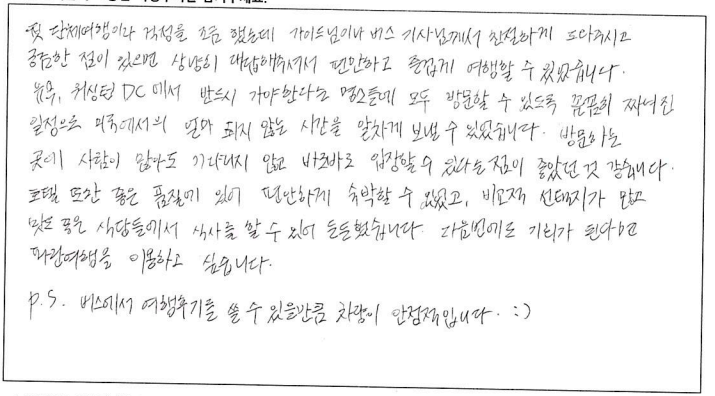 첫 단체여행이라 걱정을 조금 했는데 가이드님이나 버스 기사님께서 친절하게 도와주시고
궁금한 점이 있으면 상냥히 대답해주셔서 편안하고 즐겁게 여행할 수 있었습니다.
뉴욕, 워싱턴 DC에서 반드시 가야한다는 명소들에 모두 방문할 수 있도록 꼼꼼히 짜여진
일정으로 미국에서의 얼마 되지 않는 시간을 알차게 보낼 수 있었습니다. 방문하는
곳에 사람이 많아도 기다리지 않고 바로바로 입장할 수 있다는 점이 좋았던 것 같습니다.
호텔 또한 좋은 품질에 있어 편안하게 숙박할 수 있었고, 비교적 선택지가 많고
맛도 좋은 식당들에서 식사를 할 수 있어 든든했습니다. 다음번에도 기회가 된다면
파란여행을 이용하고 싶습니다.
p.s. 버스에서 여행후기를 쓸 수 있을만큼 차량이 안정적입니다. :)